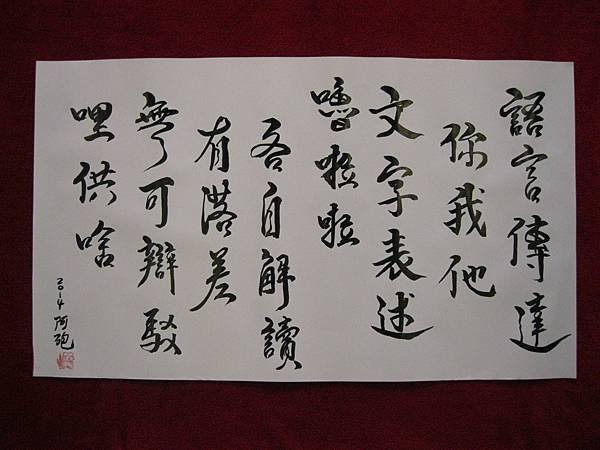 語言傳達
你我他
文字表述
嚕啦啦
各自解讀
有落差
無可辯駁
哩供啥
2014 阿砲